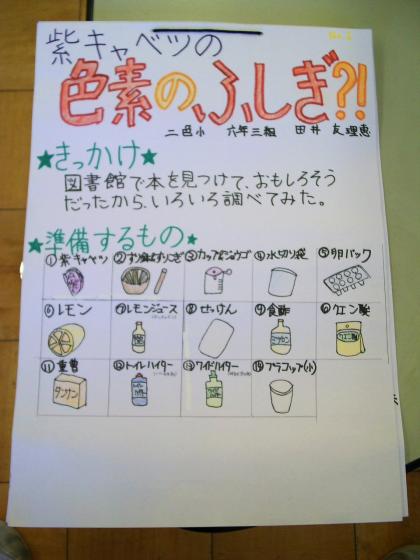 No.1
紫キャベツの
色素のふしぎ?!
二色小 六年三組 田井 友理恵
★きっかけ★
図書館で本を見つけて、おもしろそう
だったから、いろいろ調べてみた。
★準備するもの★
①紫キャベツ ②すり鉢とすりこぎ ③カップとジョウゴ ④水切り袋 ⑤卵パック
⑥レモン ⑦レモンジュース ⑧せっけん ⑨食酢 ⑩クエン酸
⑪重曹 ⑫トイレハイター ⑬ワイドハイター ⑭プラコップ(小)
タンサン